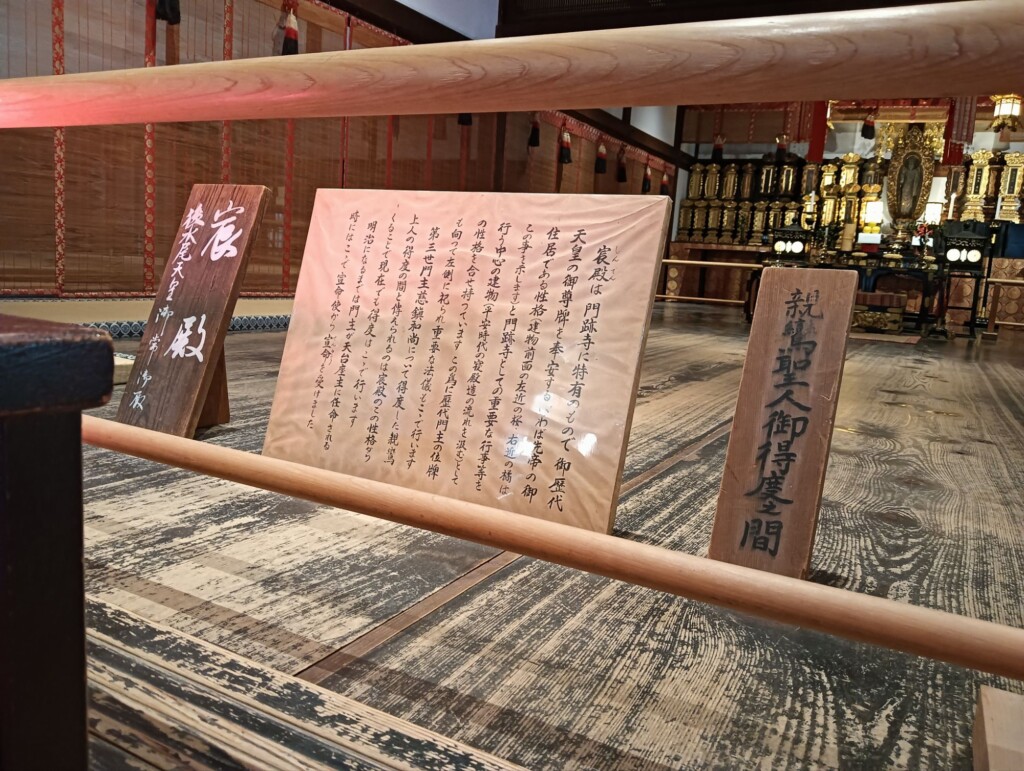 親鸞聖人御得度之間
しんでん
宸殿は 門跡寺に特有のもので 御歴代
天皇の御尊牌を奉安する いわば先帝の御
住居である性格 建物前面の左近の桜、右近の橘は
この事を示しますと門跡寺としての重要な行事等を
行う中心の建物 平安時代の寝殿造の流れを汲むとして
の性格を合せ持っています この為に歴代門主の位牌
も向って左側に祀られ 重要な法儀もここで行います
第三世門主慈鎮和尚について得度した親鸞
上人の得度の間と伝えられるものは宸殿のこの性格から
くることで現在でも得度はここで行います
明治になるまでは門主が天台座主に任命される
時にはここで宣命使から宣命を受けました
宸殿
後水尾天皇御常御殿